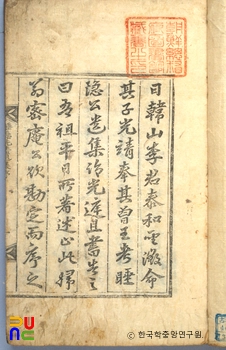 日韓山李君泰和重凝命
其子光靖奉其曾王考睡
隱公遺集於光庭且書告之
曰吾祖平日所著述止此婦
翁密庵公欲勘定而序之
© 한국학중앙연구원